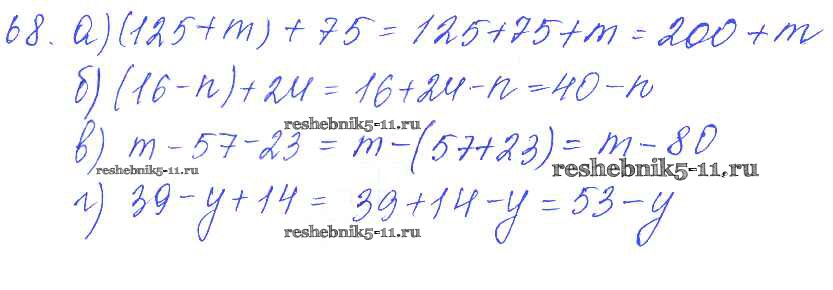 68. а) (125 + m) + 75 = 125 + 75 + m = 200 + m
б) (16 - n) + 24 = 16 + 24 - n = 40 - n
reshebnik5-11.ru
в) m - 57 - 23 = m - (57 + 23) = m - 80
reshebnik5-11.ru
reshebnik5-11.ru
г) 39 - y + 14 = 39 + 14 - y = 53 - y
reshebnik5-11.ru